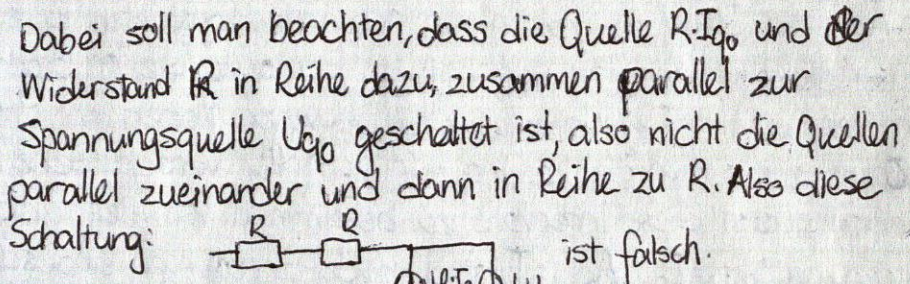 Dabei soll man beachten, dass die Quelle R·Iq₀ und der
Widerstand R in Reihe dazu, zusammen parallel zur
Spannungsquelle Uq₀ geschaltet ist, also nicht die Quellen
parallel zueinander und dann in Reihe zu R. Also diese
Schaltung: R R ist falsch.